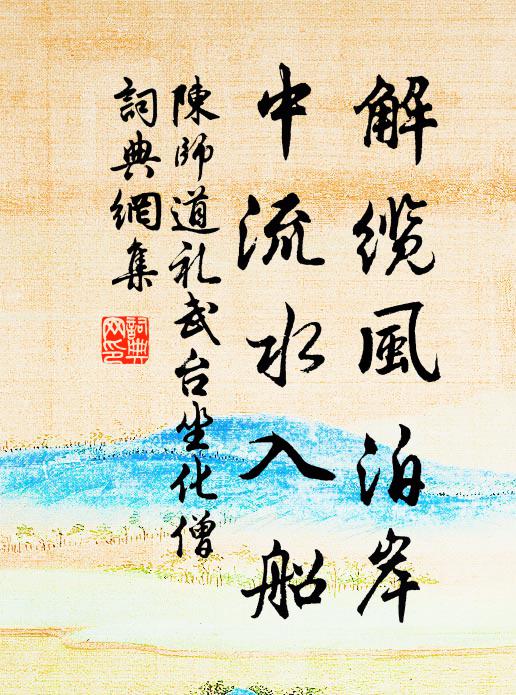 解缆風泊岸
中流水入船
陳師道礼武台坐化僧
詞典網集
詞典
网印